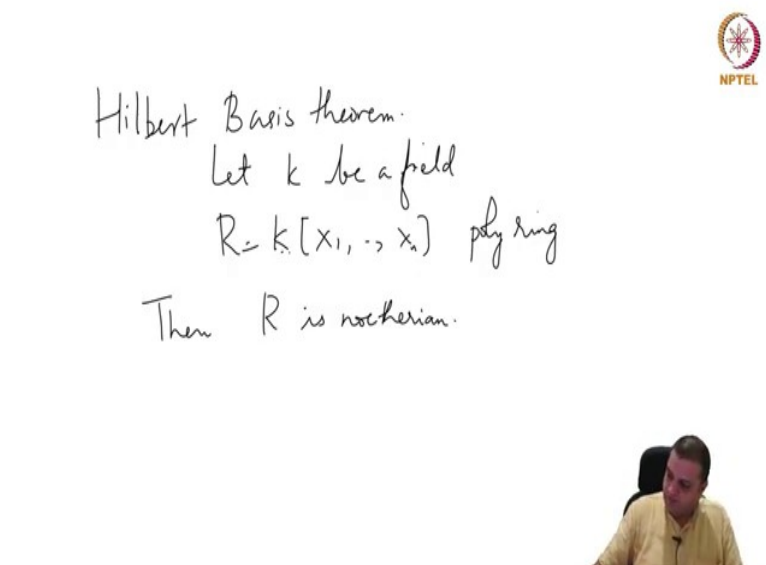 NPTEL
Hilbert Basis theorem.
Let k be a field
R = k[x₁, .., xₙ] poly ring
Then R is noetherian.